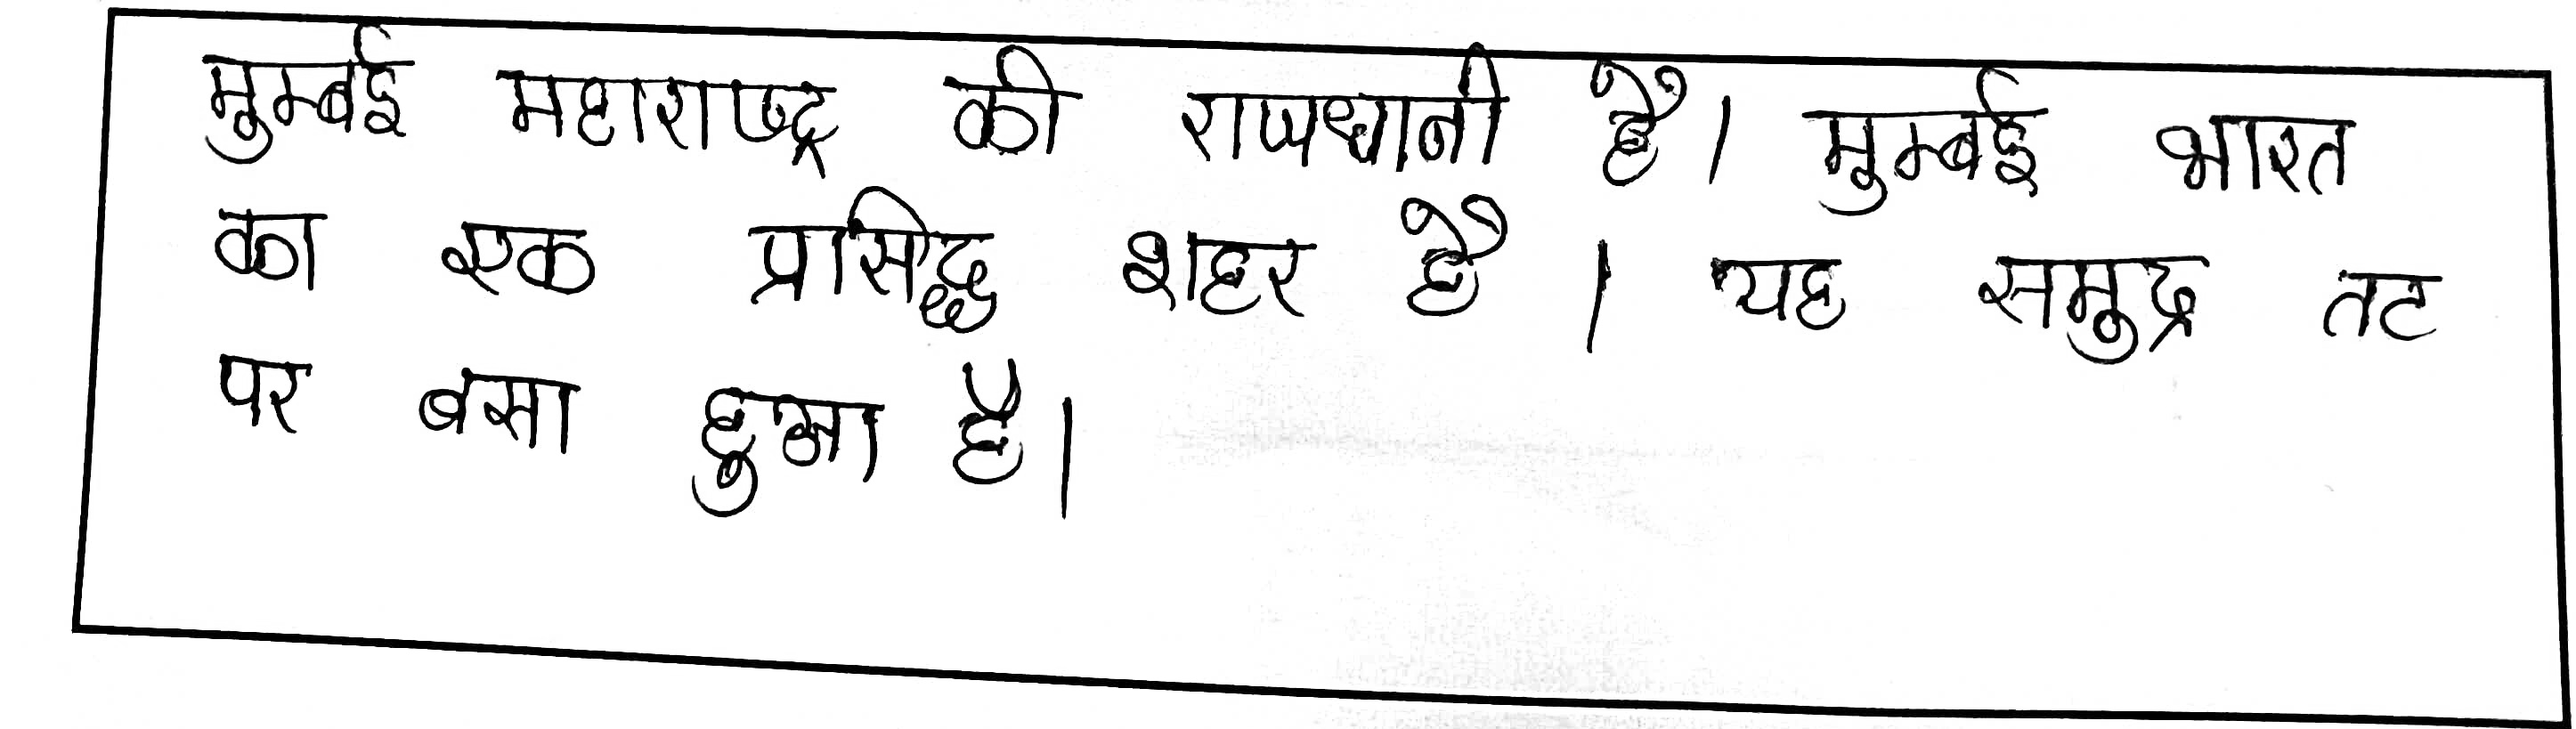 मुम्बई महाराष्ट्र की राजधानी है। मुम्बई भारत
का एक प्रसिद्ध शहर है। यह समुद्र तट
पर बसा हुआ है।